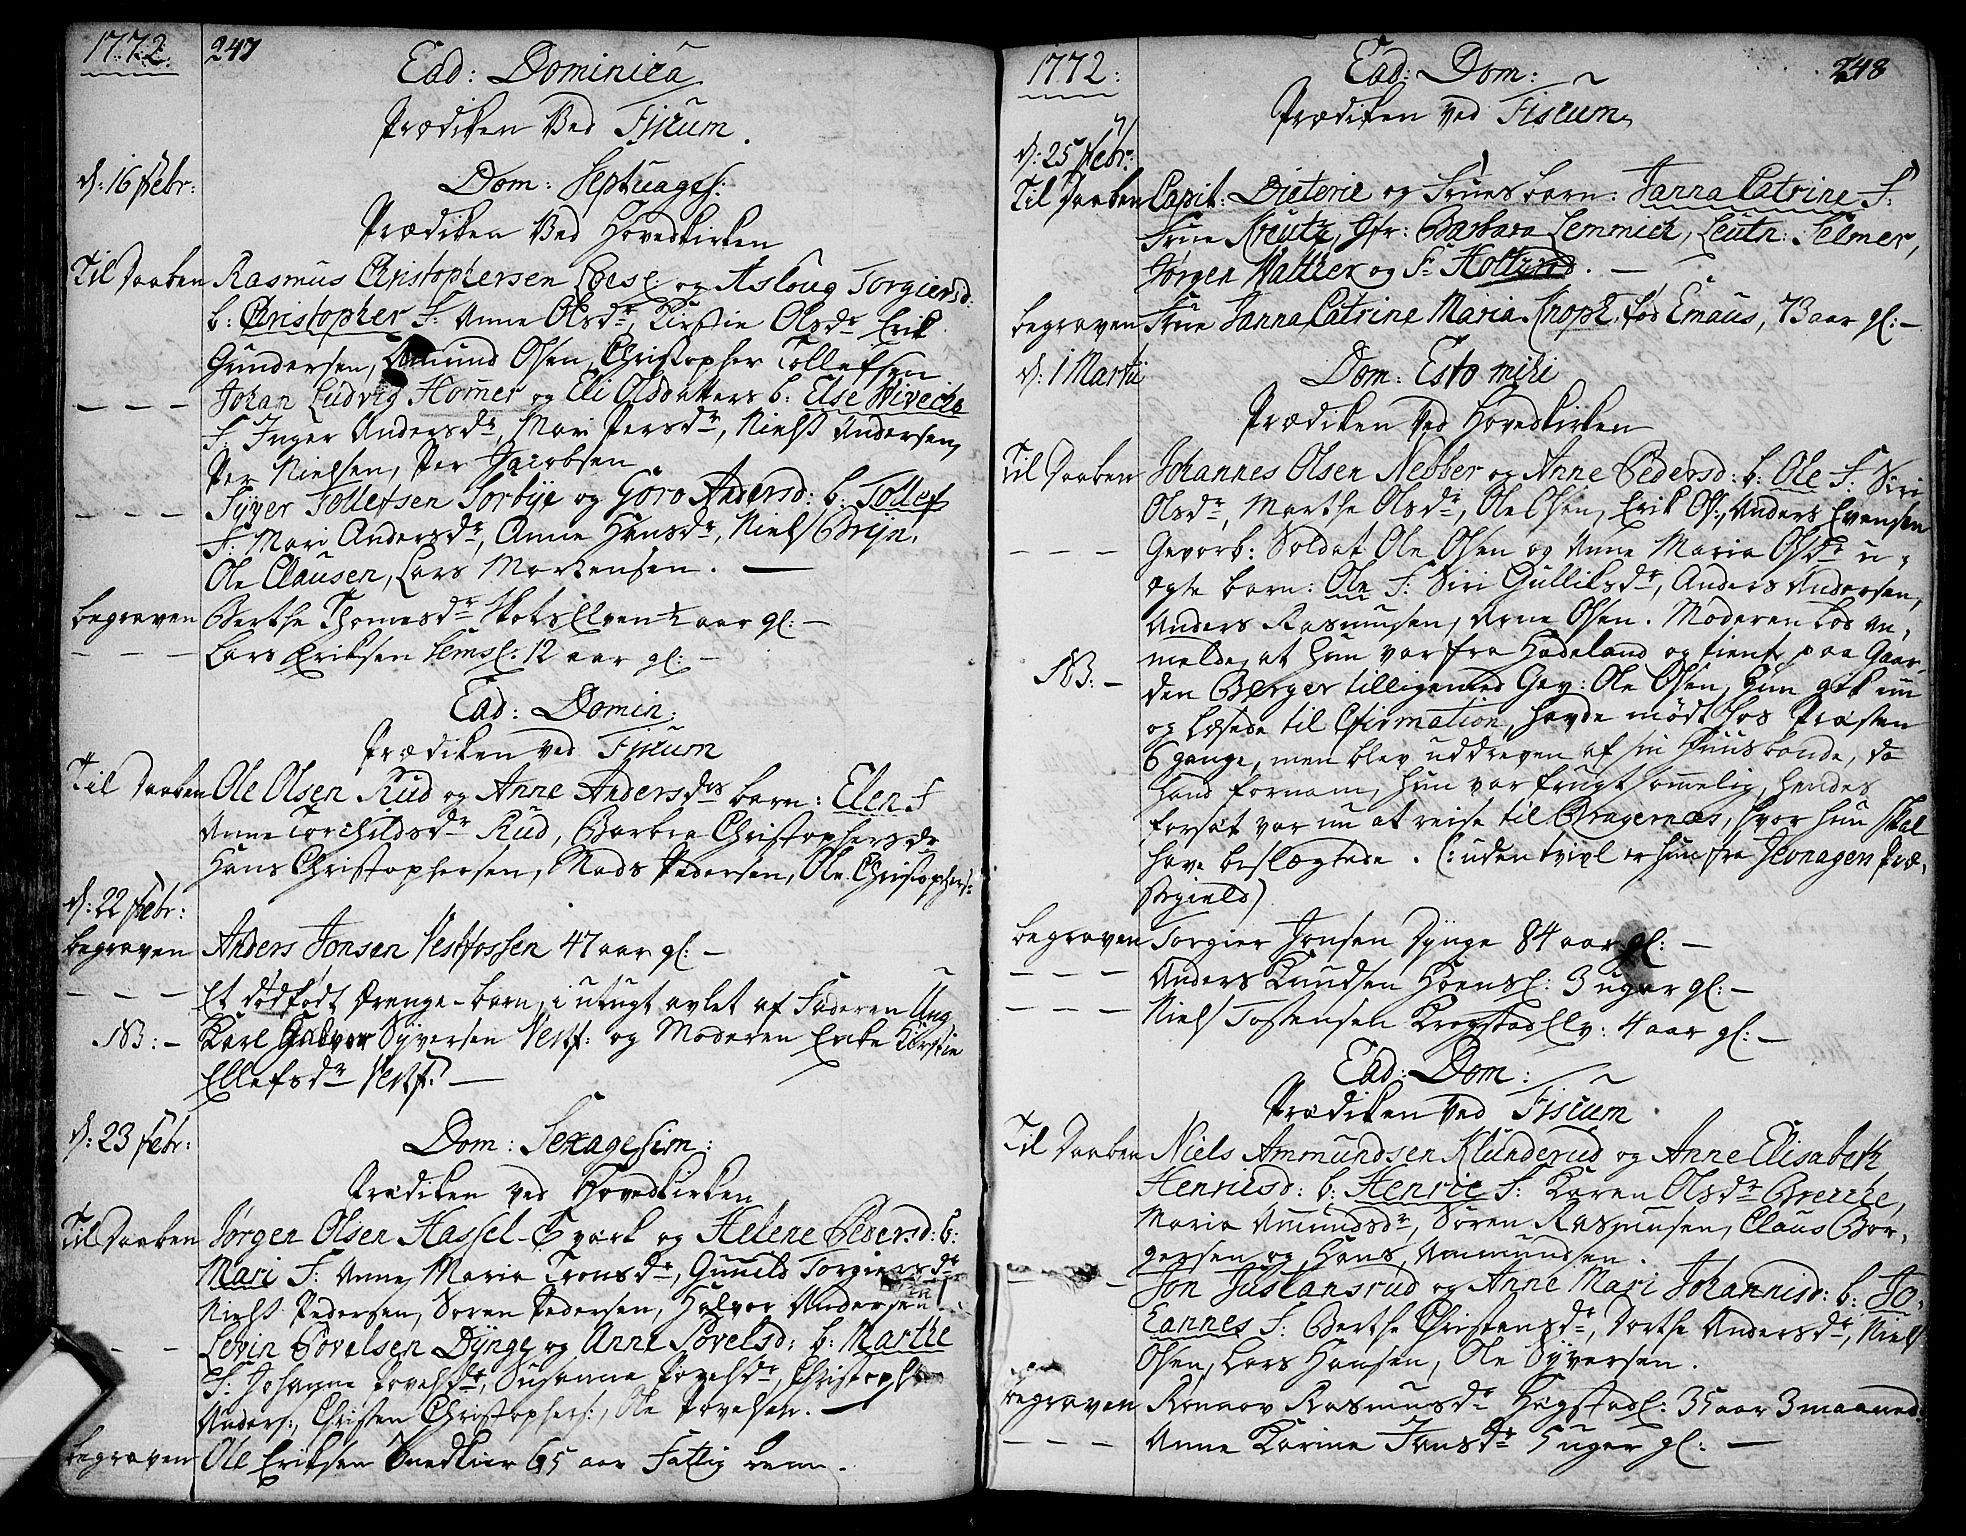 1772. 247
Ead: Dominica
Prædiken Ved Fiscum.
d: 16 Febr: Dom: Septuages:
Prædiken Ved Hovedkirken
Til Daaben Rasmus Christophersen Loese og Asloug Torgiersd:
b: Christopher F: Anne Olsdr, Kirstie Olsdr Erik
Gundersen, Amund Olsen, Christopher Tollefsen
- - - Johan Ludvig Homer og Eli Olsdatters b: Else Wiveche
F: Inger Andersdr, Mari Persdr, Niels Andersen,
Per Nielsen, Per Jacobsen
- - - Syver Tollefsen Sorbye og Goro Andersd: b: Tollef
F: Mari Andersdr, Anne Hansdr, Niels Bryn,
Ole Clausen, Lars Mortensen. -
begraven Berthe Thomesdr Skotselven ½ aar gl: -
- - - Lars Eriksen Semsl: 12 aar gl: -
Ead: Domin:
Prædiken ved Fiscum
Til Daaben Ole Olsen Rud og Anne Andersdrs barn: Elen F
Anne Torchildsdr Rud, Barbra Christophersdr
Hans Christophersen, Mads Pedersen, Ole Christophers:
d: 22 Febr:
begraven Anders Jonsen Vestfossen 47 aar gl: -
- - - Et dødfødt Drenge-barn, i utugt avlet af Faderen Ung
NB: - Karl Halvor Syversen Vestf: og Moderen Enke Kirstie
Ellefsdr Vestf: -
d: 23 Febr: Dom: Sexagesim:
Prædiken ved Hovedkirken
Til Daaben Jørgen Olsen Hassel-Spark og Helene Pedersd: b:
Mari F: Anne Maria Tronsdr, Gunild Torgiersdr
Niels Pedersen, Soren Pedersen, Halvor Andersen
- - Levin Povelsen Dynge og Anne Povelsd: b: Marthe
F: Johanne Povelsdr, Susanna Povelsdr, Christoph
Anders:, Christen Christophers:, Ole Povelsen. -
begraven Ole Eriksen Snedkier 65 aar Fattig
1772: 248
Ead: Dom:
Prædiken ved Fiscum
d: 25 Febr:
Til Daaben Capit: Dieterie og Frues barn: Janna Catrine F:
Frue Kreutz, Jfr: Barbara Lemmich, Leutn: Selmer,
Jørgen Walther og Sr Holtzrod. -
begraven Frue Janna Catrine Maria Knoph, fød Emaus, 73 aar gl: -
d: 1 Martii Dom: Esto mihi
Prædiken ved Hovedkirken
Til Daaben Johannes Olsen Nebber og Anne Pedersd: b: Ole F: Siri
Olsdr, Marthe Olsdr, Ole Olsen, Erik Ols:, Anders Evensen
- - - Gevorb: Soldat Ole Olsen og Anne Maria Olsdr u-
ægte barn: Ole F: Siri Gulliksdr, Anders Andersen,
Anders Rasmusen, Arne Olsen. Moderen lod an-
melde, at hun var fra Hadeland og tient paa Gaar-
NB: - den Berger tilligemed Gev: Ole Olsen, hun gik nu
og læsede til Cfirmation, havde mødt hos Præsten
6 gange, men blev uddreven af sin Huusbonde, da
hand fornam, hun var frugtsommelig, hendes
forsæt var nu at reise til Bragernæs, hvor hun skal
have beslægtede. (: uden tvivl er hun fra Jevnagen Præ-
stegield)
begraven Torgier Jonsen Dynge 84 aar gl: -
- - - Anders Knudsen Hoensl: 3 uger gl: -
- - - Niels Tostensen Krogstad Elv: 4 aar gl: -
Ead: Dom:
Prædiken ved Fiscum.
Til Daaben Niels Ammundsen Klunderud og Anne Elisabeth
Henricsd: b: Henric F: Karen Olsdr Brecke,
Maria Amundsdr, Søren Rasmusen, Claus Bor-
gersen og Hans Ammundsen.
- - Jon Juslansrud og Anne Mari Johannisd: b: Jo-
hannes F: Berthe Christensdr, Dorthe Andersdr, Niels
Olsen, Lars Hansen, Ole Syversen.
begraven Ronnov Rasmusdr Hegstadl: 35 aar 3 maaned
- - - Anne Karine Jensdr 5 uger gl: -